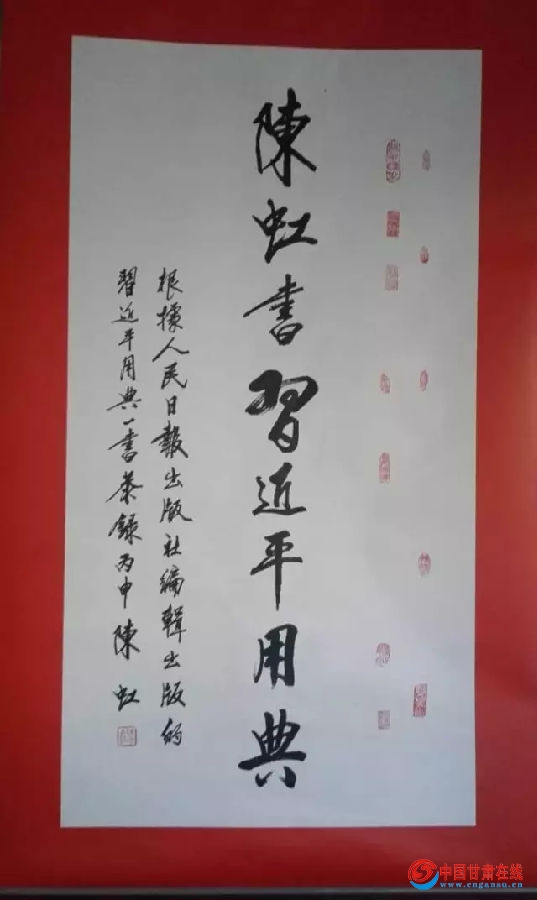 陳虹書習近平用典
根據人民日報出版社編輯出版的
習近平用典一書恭錄丙申陳虹
中国甘肃在线
www.cngansu.cn